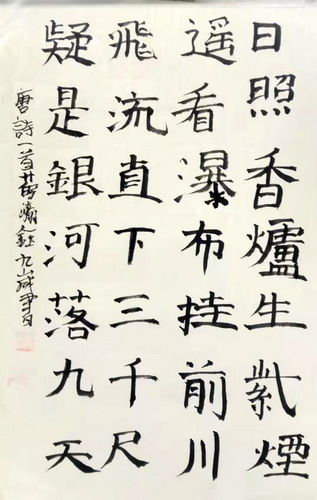 日照香爐生紫煙
遙看瀑布挂前川
飛流直下三千尺
疑是銀河落九天
唐詩一首